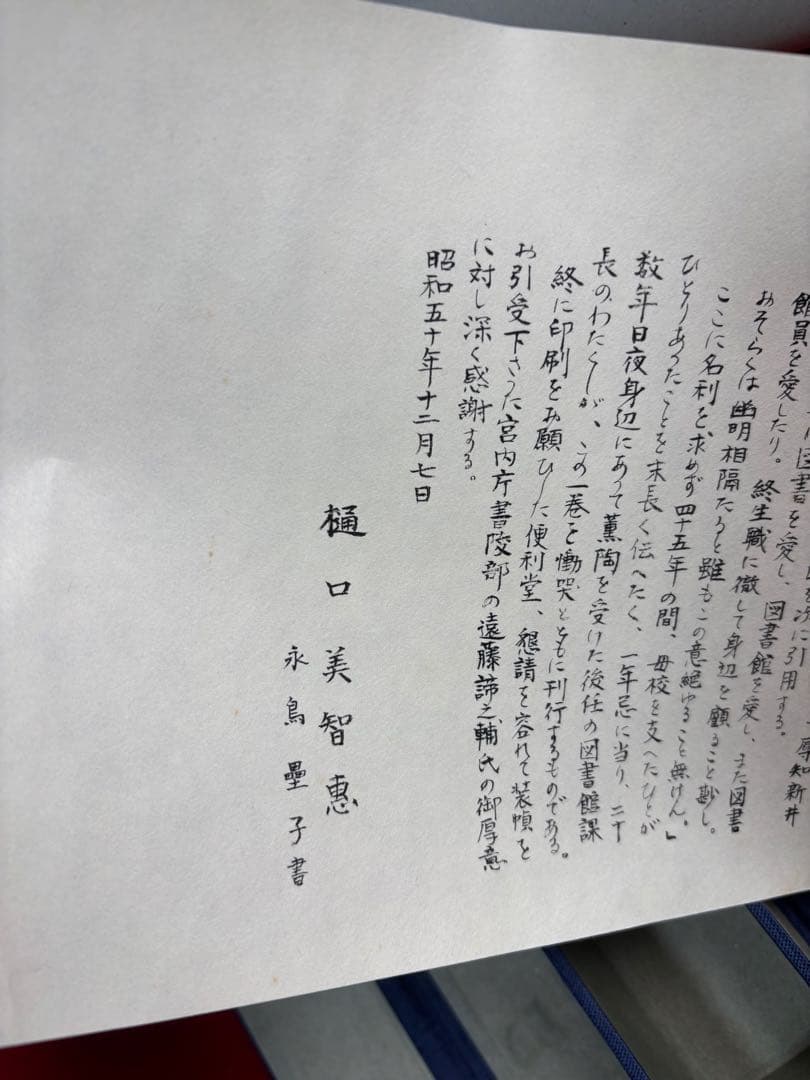 を次に引用する。
館員を愛したり。
は図書を愛し、図書館を愛し、また図書
終生職に徹して身辺を顧ること尠し。
おそらくは幽明相隔たると雖もこの意絶ゆること無けん。」
ここに名利を求めず四十五年の間、母校を支へたひとが
ひとりあったことを末長く伝へたく、一年忌に当り、二十
数年日夜身辺にあって薫陶を受けた後任の図書館課
長のわたくしが、この一巻を慟哭とともに刊行するものである。
終に印刷をお願ひした便利堂、懇請を容れて装幀を
お引受下さった宮内庁書陵部の遠藤諦之輔氏の御厚意
に対し深く感謝する。
昭和五十年十二月七日
樋口美智恵
永鳥壘子書